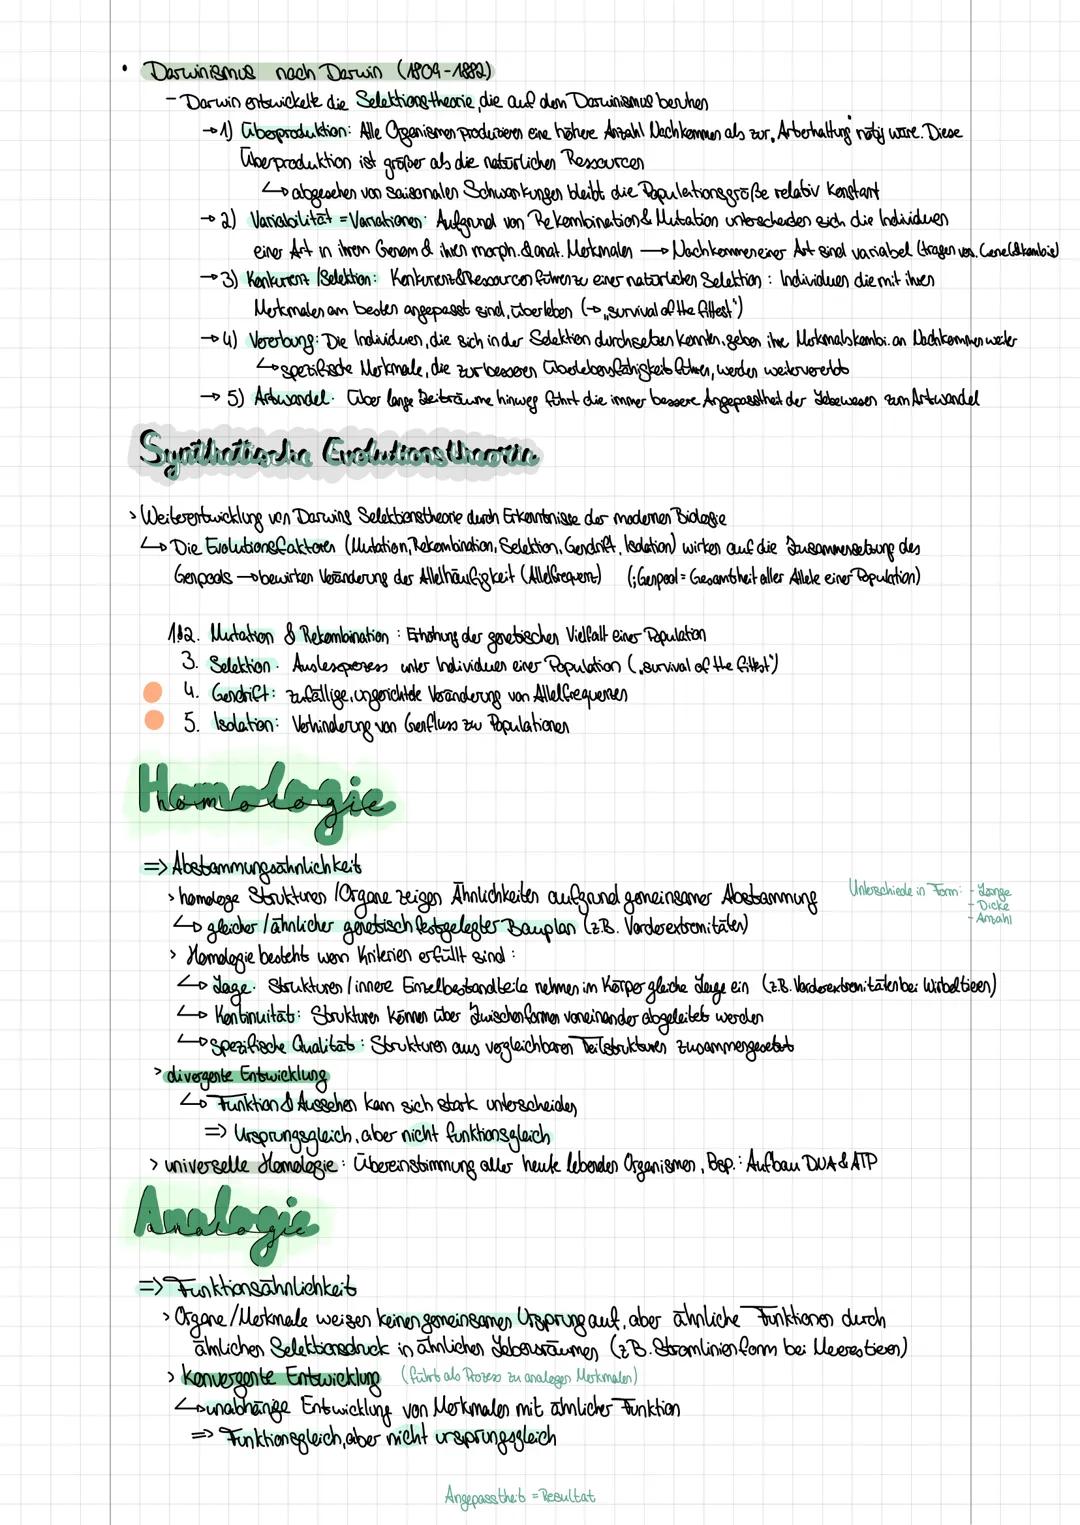 • Darwinismus nach Darwin (1809-1882)
- Darwin entwickelt die Selektionstheorie, die auf dem Darwinismus beruhen
→ 1) Überproduktion: Alle Organismen produzieren eine höhere Anzahl Nachkommen als zur „Arterhaltung" nötig wäre. Diese
Überproduktion ist größer als die natürlichen Ressourcen
↳ abgesehen von saisonalen Schwankungen bleibt die Populationsgröße relativ konstant
→ 2) Variabilität = Variationen: Aufgrund von Rekombination & Mutation unterscheiden sich die Individuen
einer Art in ihrem Genom & ihren morph. & anat. Merkmalen → Nachkommen einer Art sind variabel (tragen ver. Genallelkombis)
→ 3) Konkurrenz / Selektion: Konkurrenz & Ressourcen führen zu einer natürlichen Selektion: Individuen die mit ihren
Merkmalen am besten angepasst sind, überleben (→ „survival of the fittest")
→ 4) Vererbung: Die Individuen, die sich in der Selektion durchsetzen konnten, geben ihre Merkmalskombi. an Nachkommen weiter
↳ spezifische Merkmale, die zur besseren Überlebensfähigkeit führen, werden weitervererbt
→ 5) Artwandel: Über lange Zeiträume hinweg führt die immer bessere Angepasstheit der Lebewesen zum Artwandel
Synthetische Evolutionstheorie
> Weiterentwicklung von Darwins Selektionstheorie durch Erkenntnisse der modernen Biologie
↳ Die Evolutionsfaktoren (Mutation, Rekombination, Selektion, Gendrift, Isolation) wirken auf die Zusammensetzung des
Genpools → bewirken Veränderung der Allelhäufigkeit (Allelfrequenz) (; Genpool = Gesamtheit aller Allele einer Population)
1&2. Mutation & Rekombination: Erhöhung der genetischen Vielfalt einer Population
3. Selektion: Ausleseprozess unter Individuen einer Population („survival of the fittest")
4. Gendrift: zufällige, ungerichtete Veränderung von Allelfrequenzen
5. Isolation: Verhinderung von Genfluss zw Populationen
Homologie
=> Abstammungsähnlichkeit
> homologe Strukturen / Organe zeigen Ähnlichkeiten aufgrund gemeinsamer Abstammung
Unterschiede in Form: - Länge
- Dicke
- Anzahl
↳ gleicher / ähnlicher genetisch festgelegter Bauplan (z.B. Vorderextremitäten)
> Homologie besteht wenn Kriterien erfüllt sind:
↳ Lage: Strukturen / innere Einzelbestandteile nehmen im Körper gleiche Lage ein (z.B. Vorderextremitäten bei Wirbeltieren)
↳ Kontinuität: Strukturen können über Zwischenformen voneinander abgeleitet werden
↳ spezifische Qualität: Strukturen aus vergleichbaren Teilstrukturen zusammengesetzt
> divergente Entwicklung
↳ Funktion & Aussehen kann sich stark unterscheiden
=> Ursprungsgleich, aber nicht funktionsgleich
> universelle Homologie: Übereinstimmung aller heute lebenden Organismen, Bsp.: Aufbau DNA & ATP
Analogie
=> Funktionsähnlichkeit
> Organe / Merkmale weisen keinen gemeinsamen Ursprung auf, aber ähnliche Funktionen durch
ähnlichen Selektionsdruck in ähnlichen Lebensräumen (z.B. Stromlinienform bei Meerestieren)
> konvergente Entwicklung (führt als Prozess zu analogen Merkmalen)
↳ unabhängige Entwicklung von Merkmalen mit ähnlicher Funktion
=> Funktionsgleich, aber nicht ursprungsgleich
Angepasstheit = Resultat